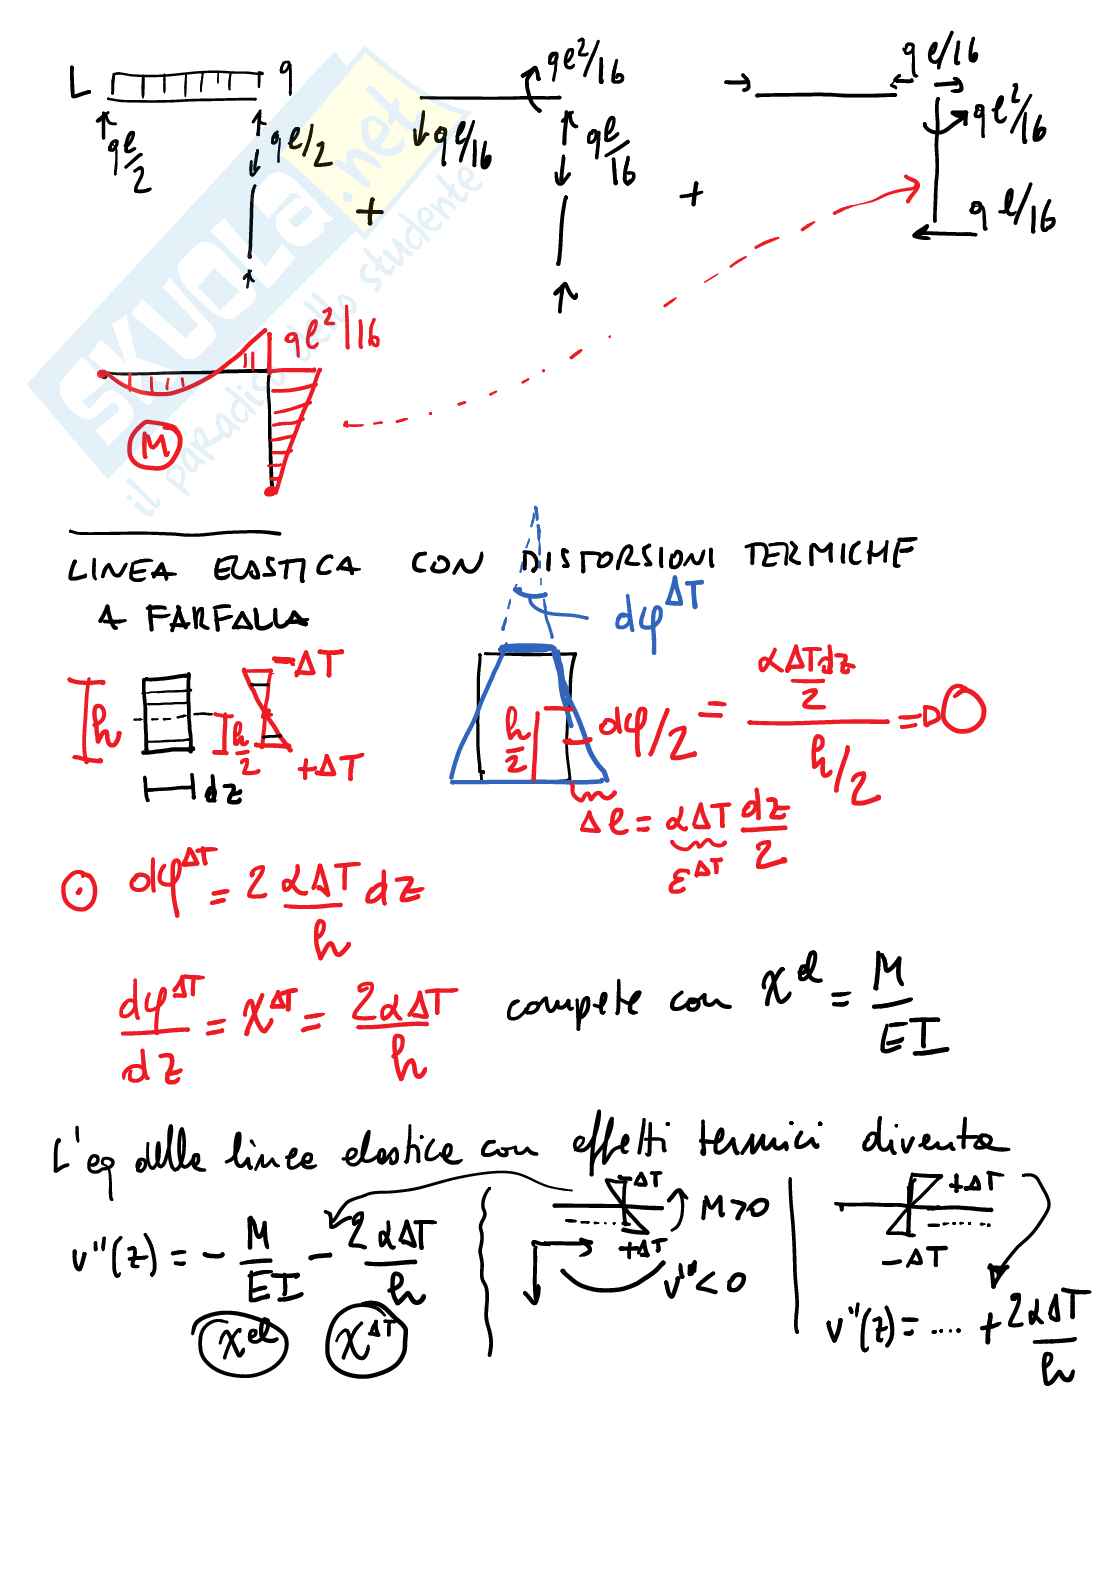 L q qℓ²/16 qℓ/16
qℓ/2 qℓ/2 qℓ/16 qℓ/16 qℓ²/16
+ + qℓ/16
SKUOLA.net
il paradiso dello studente
qℓ²/16
M
LINEA ELASTICA CON DISTORSIONI TERMICHE
A FARFALLA
dφ^ΔT
h dz h/2 -ΔT +ΔT
h/2 dφ/2 = (αΔT dz/2)/(h/2) =
Δℓ = αΔT dz/2
ε^ΔT
⊙ dφ^ΔT = 2 αΔT/h dz
dφ^ΔT/dz = χ^ΔT = 2αΔT/h compete con χ^el = M/EI
L'eq della linea elastica con effetti termici diventa
v''(z) = - M/EI - 2αΔT/h
χ^el χ^ΔT
-ΔT +ΔT M>0
v''<0
+ΔT -ΔT
v''(z) = .... + 2αΔT/h